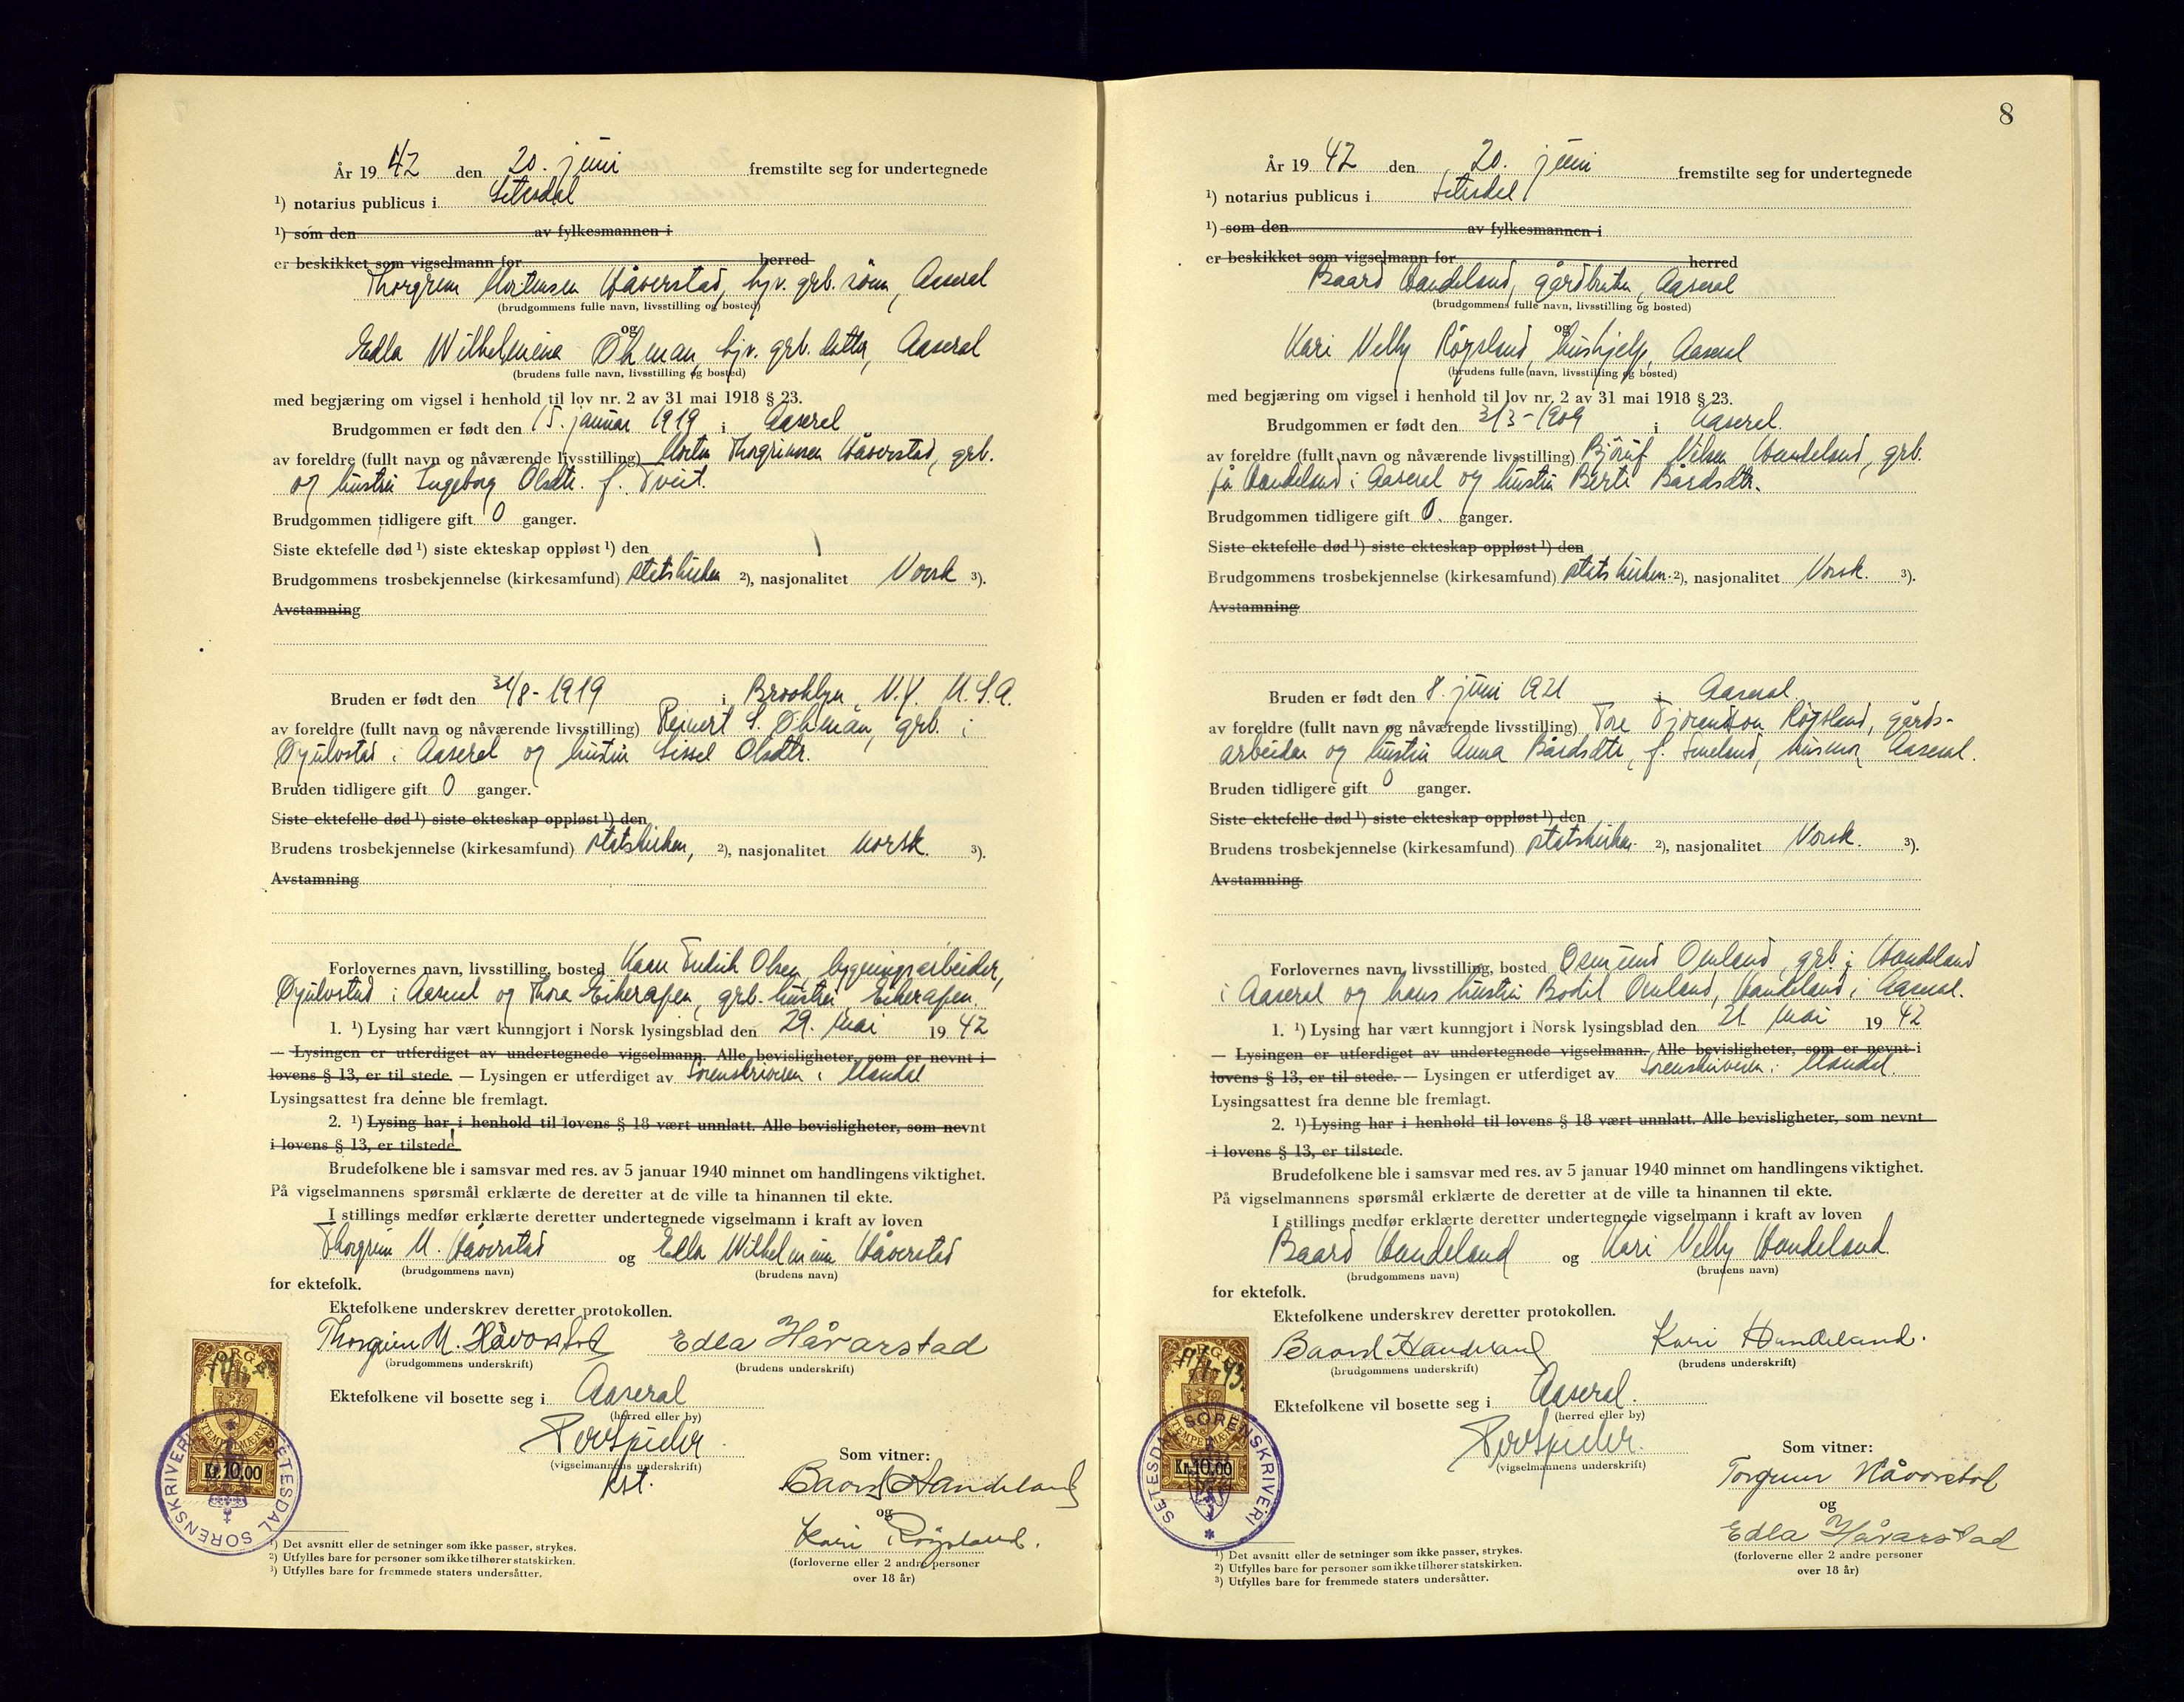 År 19 42 den 20. juni fremstilte seg for undertegnede
¹) notarius publicus i Setesdal
¹) som den av fylkesmannen i
er beskikket som vigselmann for herred
Thorgrim Mortensen Håverstad, hjv. grb. sønn, Aaseral
(brudgommens fulle navn, livsstilling og bosted)
og
Edla Wilhelmine Öhman, hjv. grb. datter, Aaseral
(brudens fulle navn, livsstilling og bosted)
med begjæring om vigsel i henhold til lov nr. 2 av 31 mai 1918 § 23.
Brudgommen er født den 15. januar 1919 i Aaseral
av foreldre (fullt navn og nåværende livsstilling) Morten Thorgrimsen Håverstad, grb.
og hustru Ingeborg Olsdtr. f. Tveit.
Brudgommen tidligere gift 0 ganger.
Siste ektefelle død ¹) siste ekteskap oppløst ¹) den
Brudgommens trosbekjennelse (kirkesamfund) statskirken ²), nasjonalitet Norsk ³).
Avstamning
Bruden er født den 31/8-1919 i Brooklyn, N.Y. U.S.A.
av foreldre (fullt navn og nåværende livsstilling) Reinert S. Öhman, grb. i
Øyulvstad i Aaseral og hustru Sissel Olsdtr.
Bruden tidligere gift 0 ganger.
Siste ektefelle død ¹) siste ekteskap oppløst ¹) den
Brudens trosbekjennelse (kirkesamfund) statskirken, ²), nasjonalitet norsk. ³).
Avstamning
Forlovernes navn, livsstilling, bosted Fredrik Olsen, bygningsarbeider,
Øyulvstad i Aaseral og Thora Eikerapen, grb. hustru, Eikerapen.
1. ¹) Lysing har vært kunngjort i Norsk lysingsblad den 29. mai 19 42
— Lysingen er utferdiget av undertegnede vigselmann. Alle bevisligheter, som er nevnt i
lovens § 13, er til stede. — Lysingen er utferdiget av Sorenskriveren i Mandal
Lysingsattest fra denne ble fremlagt.
2. ¹) Lysing har i henhold til lovens § 18 vært unnlatt. Alle bevisligheter, som nevnt
i lovens § 13, er tilstede.
Brudefolkene ble i samsvar med res. av 5 januar 1940 minnet om handlingens viktighet.
På vigselmannens spørsmål erklærte de deretter at de ville ta hinannen til ekte.
I stillings medfør erklærte deretter undertegnede vigselmann i kraft av loven
Thorgrim M. Håverstad og Edla Wilhelmine Håverstad
(brudgommens navn) (brudens navn)
for ektefolk.
Ektefolkene underskrev deretter protokollen.
Thorgrim M. Håvorstad Edla Håvarstad
(brudgommens underskrift) (brudens underskrift)
Ektefolkene vil bosette seg i Aaseral
(herred eller by)
(vigselmannens underskrift)
kst.
Som vitner:
Baard Handeland
og
Kari Røysland.
(forloverne eller 2 andre personer
over 18 år)
NORGE
STEMPELMERKE
Kr. 10.00
SETESDAL SORENSKRIVERI
¹) Det avsnitt eller de setninger som ikke passer, strykes.
²) Utfylles bare for personer som ikke tilhører statskirken.
³) Utfylles bare for fremmede staters undersåtter.
8
År 19 42 den 20. juni fremstilte seg for undertegnede
¹) notarius publicus i Setesdal
¹) som den av fylkesmannen i
er beskikket som vigselmann for herred
Baard Handeland, gårdbruker, Aaseral
(brudgommens fulle navn, livsstilling og bosted)
og
Kari Nelly Røysland, hushjelp, Aaseral
(brudens fulle navn, livsstilling og bosted)
med begjæring om vigsel i henhold til lov nr. 2 av 31 mai 1918 § 23.
Brudgommen er født den 3/3-1909 i Aaseral.
av foreldre (fullt navn og nåværende livsstilling) Nilsen Handeland, grb.
på Handeland i Aaseral og hustru Berte Bårdsdtr.
Brudgommen tidligere gift 0. ganger.
Siste ektefelle død ¹) siste ekteskap oppløst ¹) den
Brudgommens trosbekjennelse (kirkesamfund) statskirken. ²), nasjonalitet Norsk. ³).
Avstamning
Bruden er født den 8. juni 1921 i Aaseral.
av foreldre (fullt navn og nåværende livsstilling) Tore Røysland, gårds-
arbeider og hustru Anna Bårdsdtr, f. husmor, Aaseral.
Bruden tidligere gift 0 ganger.
Siste ektefelle død ¹) siste ekteskap oppløst ¹) den
Brudens trosbekjennelse (kirkesamfund) statskirken. ²), nasjonalitet Norsk. ³).
Avstamning
Forlovernes navn, livsstilling, bosted Osmund Omland, grb. i Handeland
i Aaseral og hans hustru Bodil Omland, Handeland i Aaseral.
1. ¹) Lysing har vært kunngjort i Norsk lysingsblad den 21. mai 19 42
— Lysingen er utferdiget av undertegnede vigselmann. Alle bevisligheter, som er nevnt i
lovens § 13, er til stede. — Lysingen er utferdiget av Sorenskriveren i Mandal.
Lysingsattest fra denne ble fremlagt.
2. ¹) Lysing har i henhold til lovens § 18 vært unnlatt. Alle bevisligheter, som nevnt
i lovens § 13, er tilstede.
Brudefolkene ble i samsvar med res. av 5 januar 1940 minnet om handlingens viktighet.
På vigselmannens spørsmål erklærte de deretter at de ville ta hinannen til ekte.
I stillings medfør erklærte deretter undertegnede vigselmann i kraft av loven
Baard Handeland og Kari Nelly Handeland
(brudgommens navn) (brudens navn)
for ektefolk.
Ektefolkene underskrev deretter protokollen.
Baard Handeland Kari Handeland.
(brudgommens underskrift) (brudens underskrift)
Ektefolkene vil bosette seg i Aaseral.
(herred eller by)
(vigselmannens underskrift)
Som vitner:
Torgrim Håvorstad
og
Edla Håvarstad
(forloverne eller 2 andre personer
over 18 år)
NORGE
STEMPELMERKE
Kr. 10.00
SETESDAL SORENSKRIVERI
¹) Det avsnitt eller de setninger som ikke passer, strykes.
²) Utfylles bare for personer som ikke tilhører statskirken.
³) Utfylles bare for fremmede staters undersåtter.